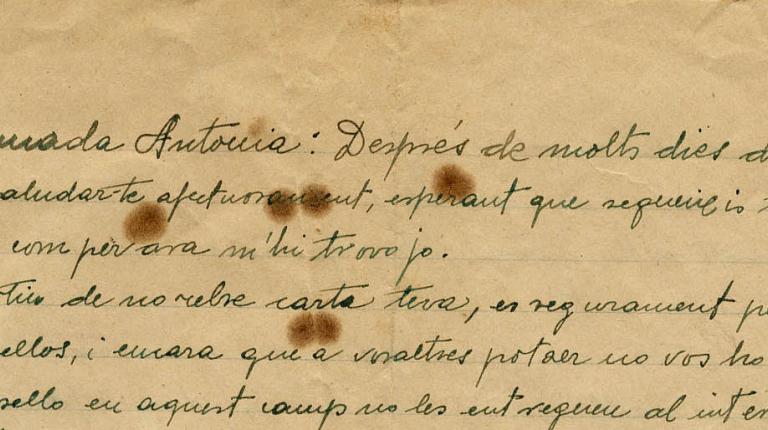 mada Antonia: Després de molts dies d
aludar-te afectuosament, esperant que segueixis
com per ara m'hi trovo jo.
de no rebre carta teva, es segurament p
ellos, i encara que a vosaltres potser no vos ho
sello en aquest camp no les entreguen al inter